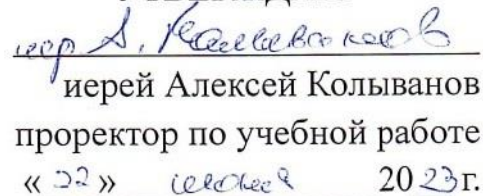 иер. А.
иерей Алексей Колыванов
проректор по учебной работе
« 22 » 2023 г.